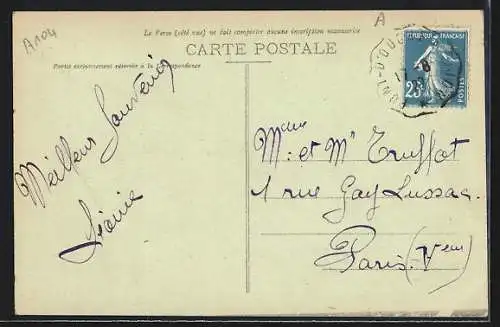 A104
A
Le Verso (côté vue) ne doit comporter aucune inscription manuscrite
CARTE POSTALE
Partie exclusivement réservée à la Correspondance
RÉPUBLIQUE FRANÇAISE
25c
POSTES
Meilleurs Souvenirs
Mme et Mr Truffot
1 rue Gay Lussac.
Paris. (Vem)